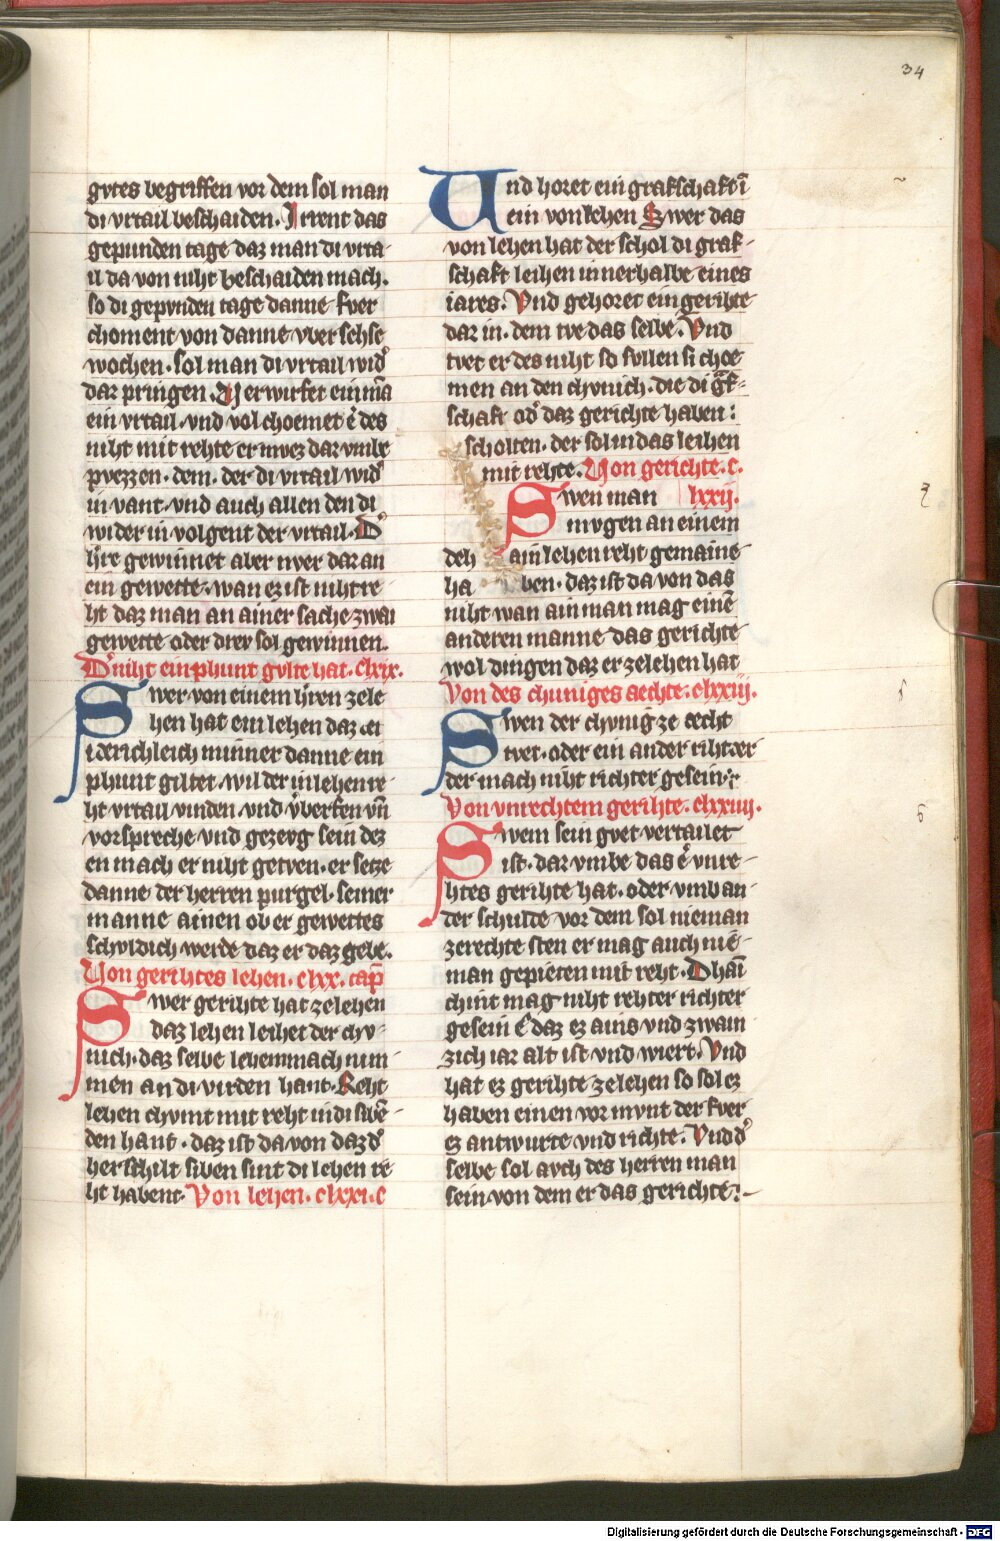 34
gvtes begriffen vor dem sol man
di vrtail beschaiden. Irrent das
gepunden tage daz man di vrta-
il da von niht beschaiden mach.
so di gepvnden tage danne fver
choment von danne vber sehse
wochen. sol man di vrtail wid
dar pringen. Verwirfet ein mā
ein vrtail. vnd vol choemet ē des
niht mit rehte er mvez dar vmbe
pvezzen. dem. der di vrtail wid
in vant. vnd auch allen den di
wider in volgent der vrtail. D
hre gewinnet aber nver dar an
ein gewette. wan ez ist niht re-
ht daz man an ainer sache zwai
gewette oder drev sol gewinnen.
D niht ein phunt gvlte hat. clxix.
Swer von einem hren zele
hen hat ein lehen daz ei
iderichleich minner danne ein
phunt giltet. wil der in lehen re-
ht vrtail vinden. vnd vberfen vn
vorspreche vnd gezevg sein dez
en mach er niht getven. er setze
danne der herren purgel. seiner
manne ainen ob er gewettes
schvldich werde daz er daz gebe.
Von gerihtes lehen. clxx. cap
Swer gerihte hat zelehen
daz lehen leihet der chv-
nich. daz selbe lehen mach nim-
men an di virden hant. Reht
lehen chvmt mit reht in di sibē-
den hant. daz ist da von daz d
herschilt siben sint di lehen re
ht habent. Von lehen. clxxi. c
Und horet ein grafschaft ī
ein von lehen Swer das
von lehen hat der schol di graf-
schaft leihen innerhalbe eines
iares. Vnd gehoret ein gerihte
dar in. dem tve das selbe. Vnd
tvet er des niht so svllen si choe
men an den chvnich. die di gf-
schaft od daz gerichte haben:
scholten. der sol in das leihen
mit rehte. Von gerichte. c.
Swen man lxxij.
mvgen an einem
deh ain lehen reht gemaine
ha ben. daz ist da von das
niht wan ain man mag einē
anderen manne das gerichte
wol dingen daz er zelehen hat
Von des chuniges aechte. clxxiij.
Swen der chvnig ze aecht
tvet. oder ein ander rihtær
der mach niht richter gesein.
Von vnrechtem gerihte. clxxiiij.
Swem sein gvet vertailet
ist. dar vmbe das ē vnre-
htes gerihte hat. oder vmb an-
der schulde vor dem sol nieman
zerechte sten er mag auch niē-
man gepieten mit reht. Dhaī
chint mag niht rehter richter
gesein ē daz ez ains vnd zwain
zich iar alt ist vnd wiert. Vnd
hat ez gerihte zelehen so sol ez
haben einen vor mvnt der fver
ez antwurte vnd richte. Vnd d
selbe sol avch des herren man
sein. von dem er das gerichte.
Digitalisierung gefördert durch die Deutsche Forschungsgemeinschaft - DFG